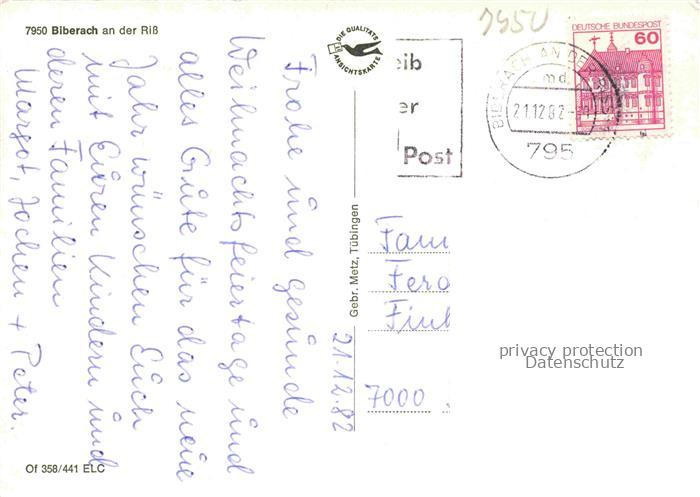 7950 Biberach an der Riß
DIE QUALITÄTS
ANSICHTSKARTE
Frohe und gesunde
Weihnachtsfeiertage und
alles Gute für das neue
Jahr wünschen Euch
mit Euren Kindern und
deren Familien
Margot, Jochen + Peter.
21.12.82
Of 358/441 ELC
Gebr. Metz, Tübingen
7950
eib
er
Post
BIBERACH AN DER
md
21.12.82
795
DEUTSCHE BUNDESPOST
60
Fam
Ferd
7000
privacy protection
Datenschutz